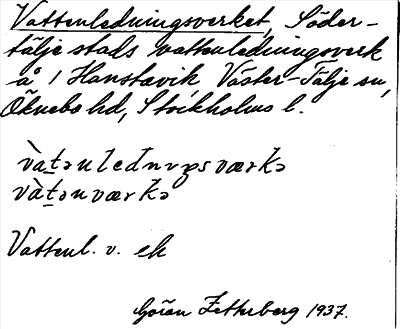 Vattenledningsverket, Söder-
tälje stads vattenledningsverk
å 1 Hanstavik Väster-Tälje sn,
Öknebo hd, Stockholms l.
vàt̠ənleđnɩŋsværkə
vàt̠ənværkə
Vattenl. v. ek
Göran Zetterberg 1937.